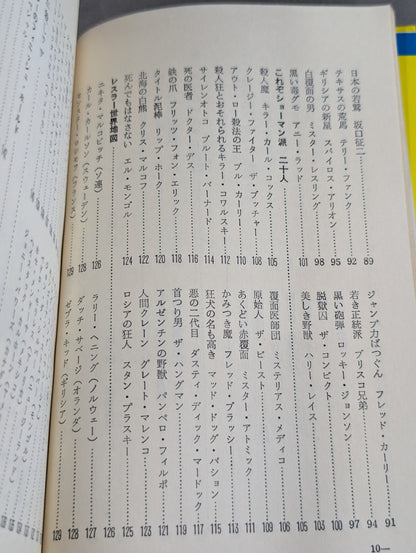 日本の若鷲 坂口征二 89
テキサスの荒馬 テリー・ファンク 92
ギリシアの新星 スパイロス・アリオン 95
白覆面の男 ミスター・レスリング 98
黒い毒グモ アニー・ラッド 101
これぞショーマン派 二十人
殺人魔 キラー・カール・コックス 105
クレージー・ファイター ザ・ブッチャー 108
アウト・ロー殺法の王 ブル・カーリー 110
殺人狂とおそれられるキラー・コワルスキー 112
サイレンオトコ ブルート・バーナード 114
死の医者 ドクター・デス 116
鉄の爪 フリッツ・フォン・エリック 118
タイトル泥棒 リップ・ホーク 120
北海の白熊 クリス・マルコフ 122
死んでもはなさない エル・モンゴル 124
レスラー世界地図
ニキタ・マルコビッチ（ソ連） 126
カール・カールソン（スウェーデン） 128
ジャンプ力ばつぐん フレッド・カーリー 91
若き正統派 ブリスコ兄弟 94
黒い砲弾 ロッキー・ジョンソン 97
脱獄囚 ザ・コンビクト 100
美しき野獣 ハリー・レイス 103
覆面医師団 ミステリアス・メディコ 106
原始人 ザ・ビースト 109
あくどい赤覆面 ミスター・アトミック 111
かみつき魔 フレッド・ブラッシー 113
狂犬の名も高き マッド・ドッグ・バション 115
悪の二代目 ダスティ・ディック・マードック 117
首つり男 ザ・ハングマン 119
アルゼンチンの野獣 パンペロ・フィルポ 121
人間クレーン グレート・マレンコ 123
ロシアの狂人 スタン・プラスキー 125
ラリー・ヘニグ（ノルウェー） 127
ダッチ・サベージ（オランダ） 128
ゼブラ・キッド（ギリシア） 129
10—